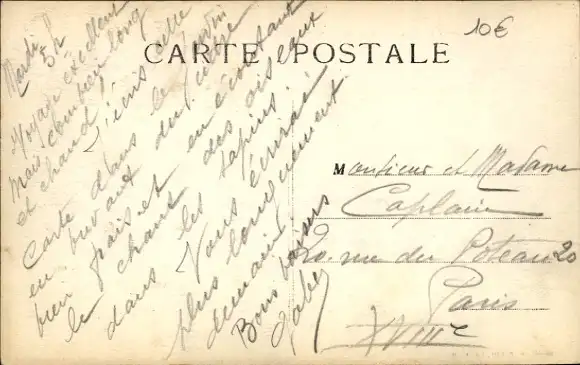 10€
CARTE POSTALE
Mardi
5h
Voyage excellent
mais combien long
et chaud !
J'écris cette
carte dans le jardin
en buvant du cidre
bien frais et en écoutant
le chant des oiseaux
dans les sapins.
Vous écrirai
plus longuement
demain
Bons baisers
Gaby
Monsieur et Madame
Caplain
20. rue du Poteau 20
Paris
XVIIIe